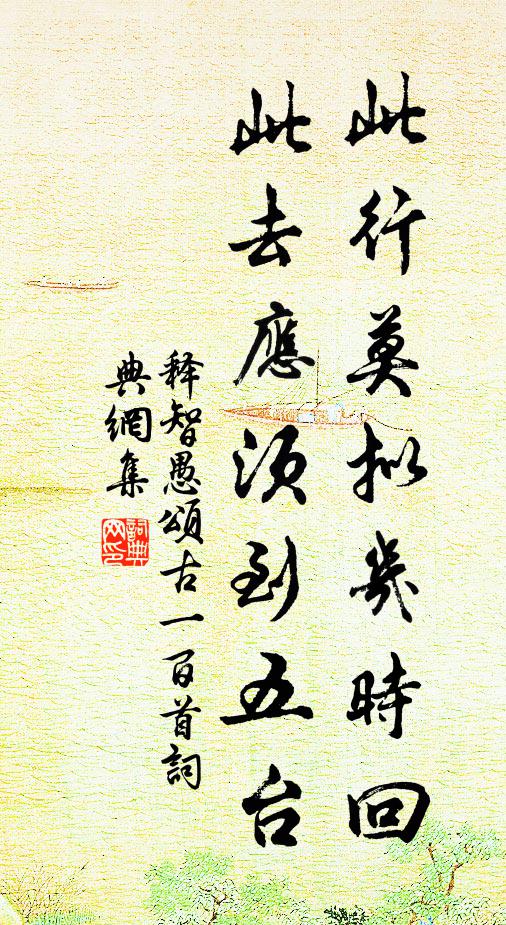 此行莫拟幾時回
此去應須到五台
释智愚頌古一百首詞
典網集
詞典網印